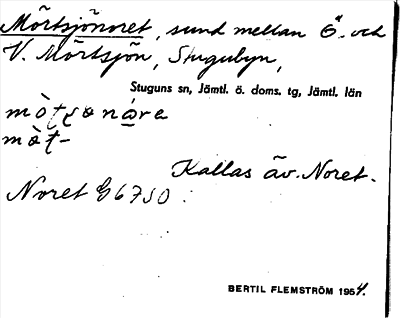 Mörtsjönoret, sund mellan Ö. och
V. Mörtsjön, Stugubyn,
Stuguns sn, Jämtl. ö. doms. tg, Jämtl. län
Kallas äv. Noret.
Noret G6750
BERTIL FLEMSTRÖM 1954.